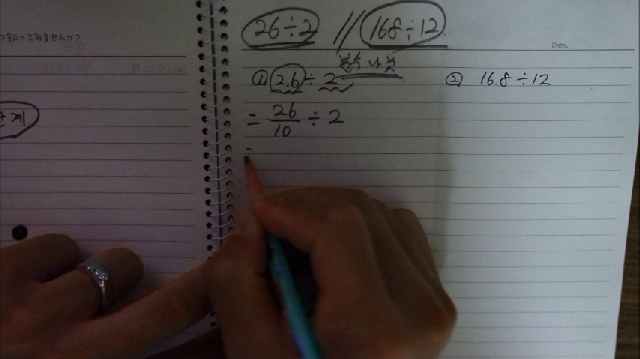 26÷2 // 168÷12
Date.
① 2.6÷2
② 16.8÷12
= 26/10 ÷ 2
=